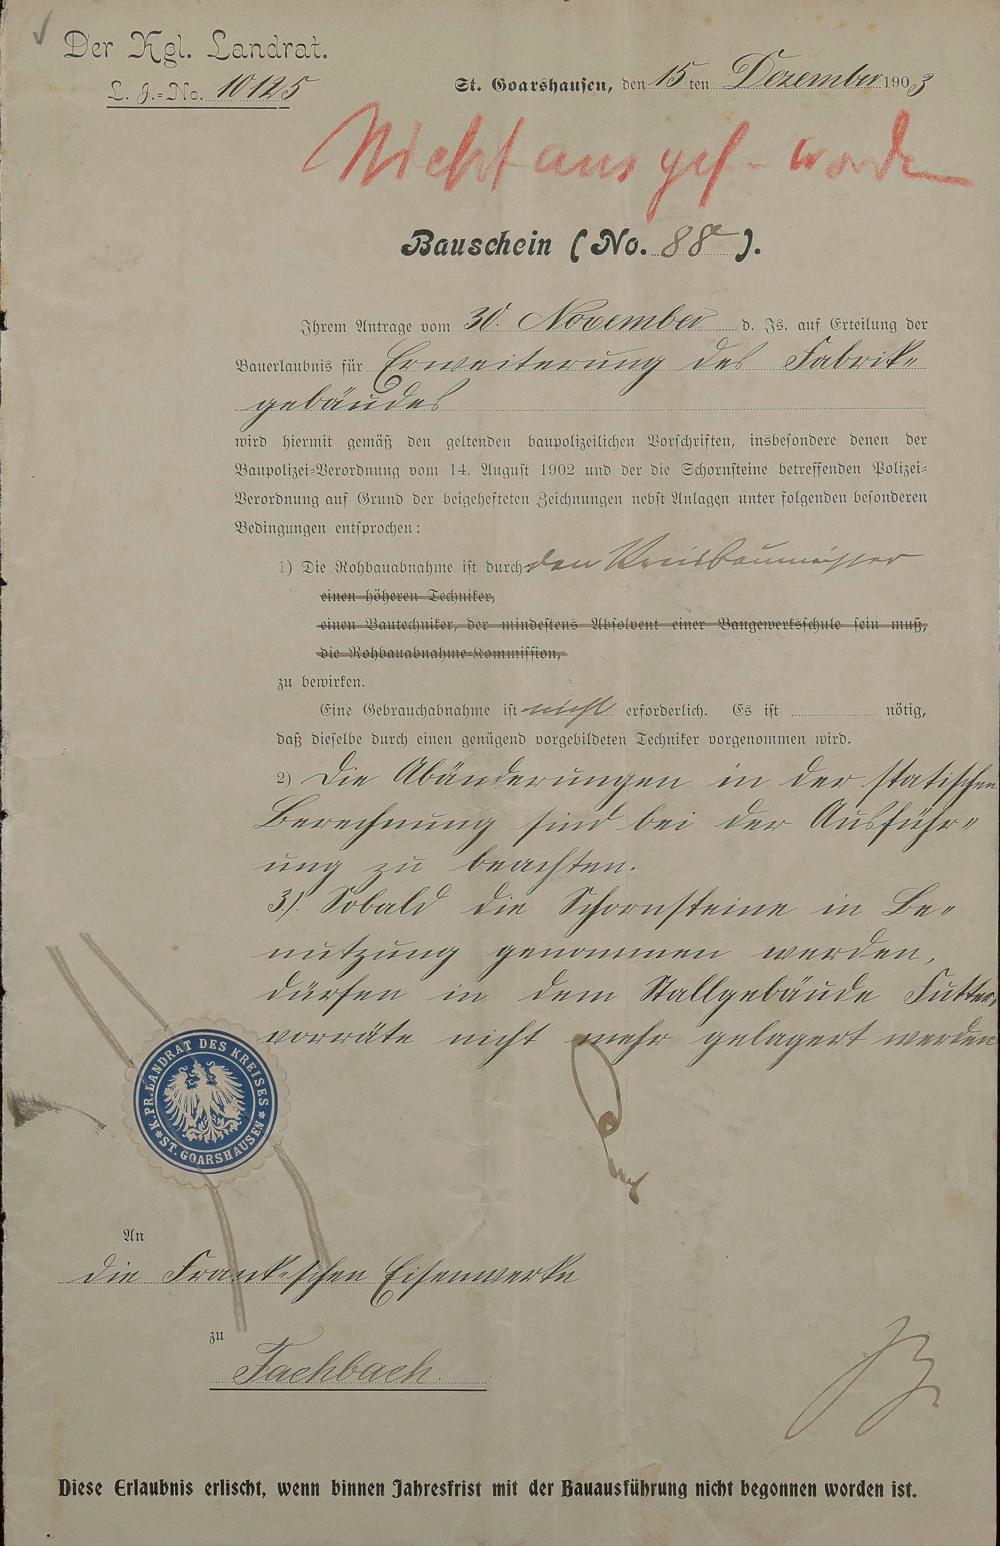 Der Kgl. Landrat.
L. J.-No. 10125
St. Goarshausen, den 15 ten Dezember 1903
Nicht ausgef- worden
Bauschein (No. 88a).
Ihrem Antrage vom 30. November d. Js. auf Erteilung der
Bauerlaubnis für Erweiterung des Fabrik-
gebäudes
wird hiermit gemäß den geltenden baupolizeilichen Vorschriften, insbesondere denen der
Baupolizei-Verordnung vom 14. August 1902 und der die Schornsteine betreffenden Polizei-
Verordnung auf Grund der beigehefteten Zeichnungen nebst Anlagen unter folgenden besonderen
Bedingungen entsprochen:
1) Die Rohbauabnahme ist durch den Kreisbaumeister
einen höheren Techniker,
einen Bautechniker, der mindestens Absolvent einer Baugewerksschule sein muß,
die Rohbauabnahme-Kommission,
zu bewirken.
Eine Gebrauchabnahme ist nicht erforderlich. Es ist nötig,
daß dieselbe durch einen genügend vorgebildeten Techniker vorgenommen wird.
2) Die Abänderungen in der statischen
Berechnung sind bei der Ausführ-
ung zu beachten.
3) Sobald die Schornsteine in Be-
nutzung genommen werden,
dürfen in dem Stallgebäude Futter-
vorräte nicht mehr gelagert werden
K. PR. LANDRAT DES KREISES
* ST. GOARSHAUSEN *
An
die Frank'schen Eisenwerke
zu
Fachbach.
Diese Erlaubnis erlischt, wenn binnen Jahresfrist mit der Bauausführung nicht begonnen worden ist.